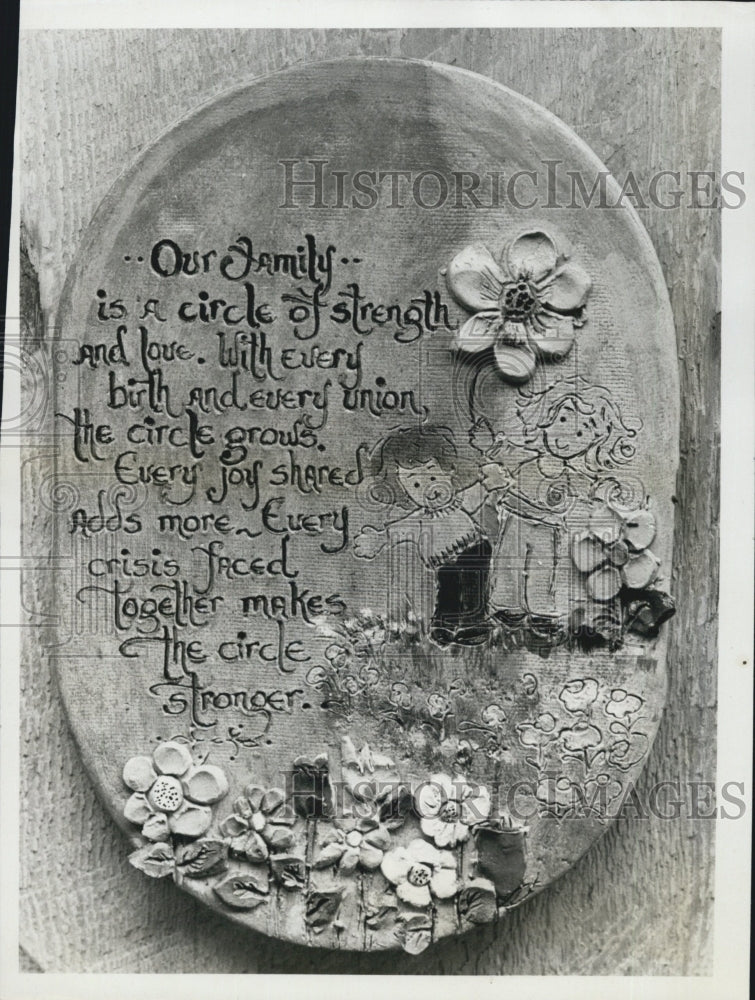 HISTORIC IMAGES
..Our Family..
is a circle of strength
and love. With every
birth and every union,
the circle grows.
Every joy shared
adds more ~ Every
crisis faced
together makes
the circle
stronger.
HISTORIC IMAGES